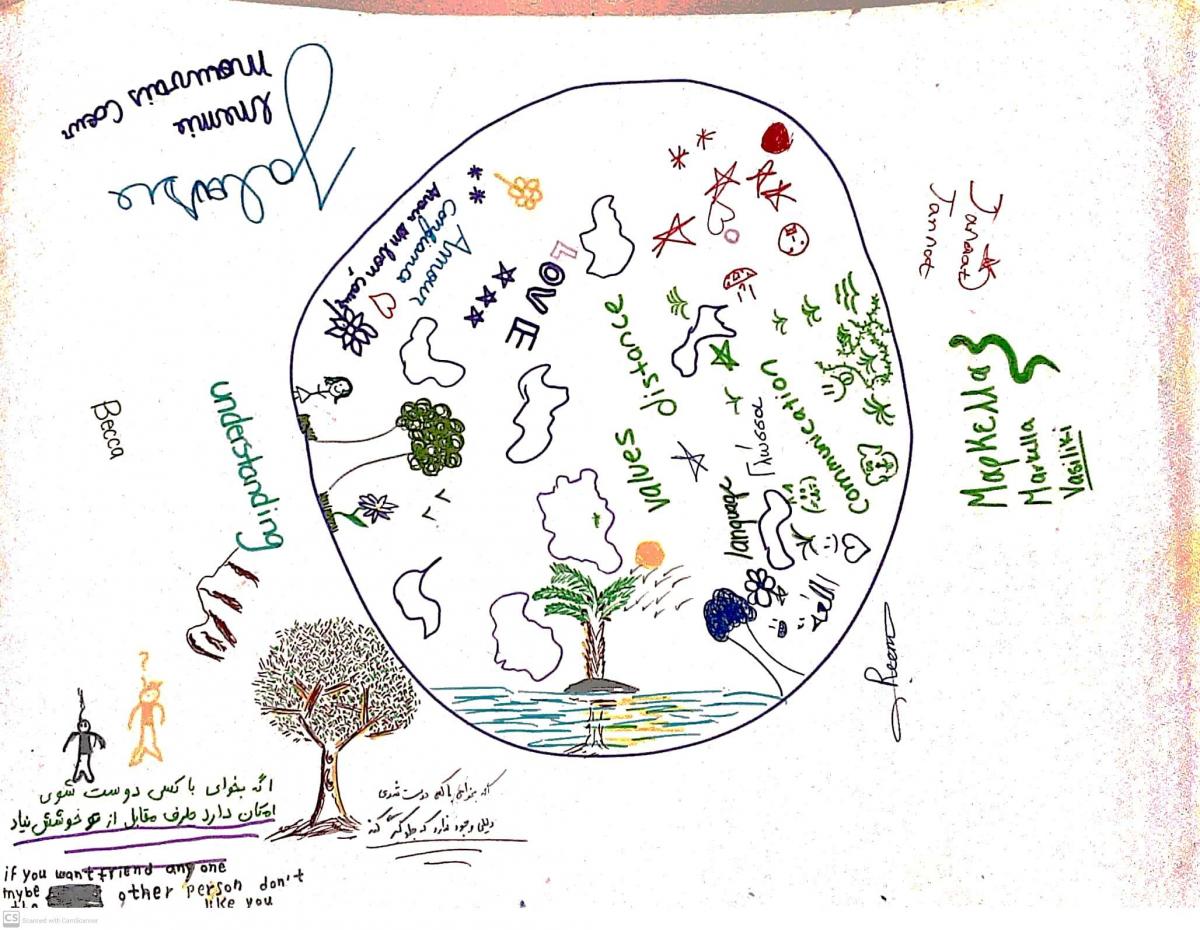 Mauvais Coeur
Enemie
Jalousie
Amour
Confiance
Avoir un bon cœur
LOVE
values distance
communication
language
Γλώσσα
understanding
Becca
Jannat
Jannat
Μαρκέλλα
Markella
Vasiliki
Reem
?
اگه بخوای با کس دوست شوی
امکان دارد طرف مقابل از تو خوشش نیاد
اگه بخوای با کسی دوست شدی
دلیلی وجود ندارد که جلوگیر کند
if you want friend any one
mybe other person don't
like you
CS Scanned with CamScanner